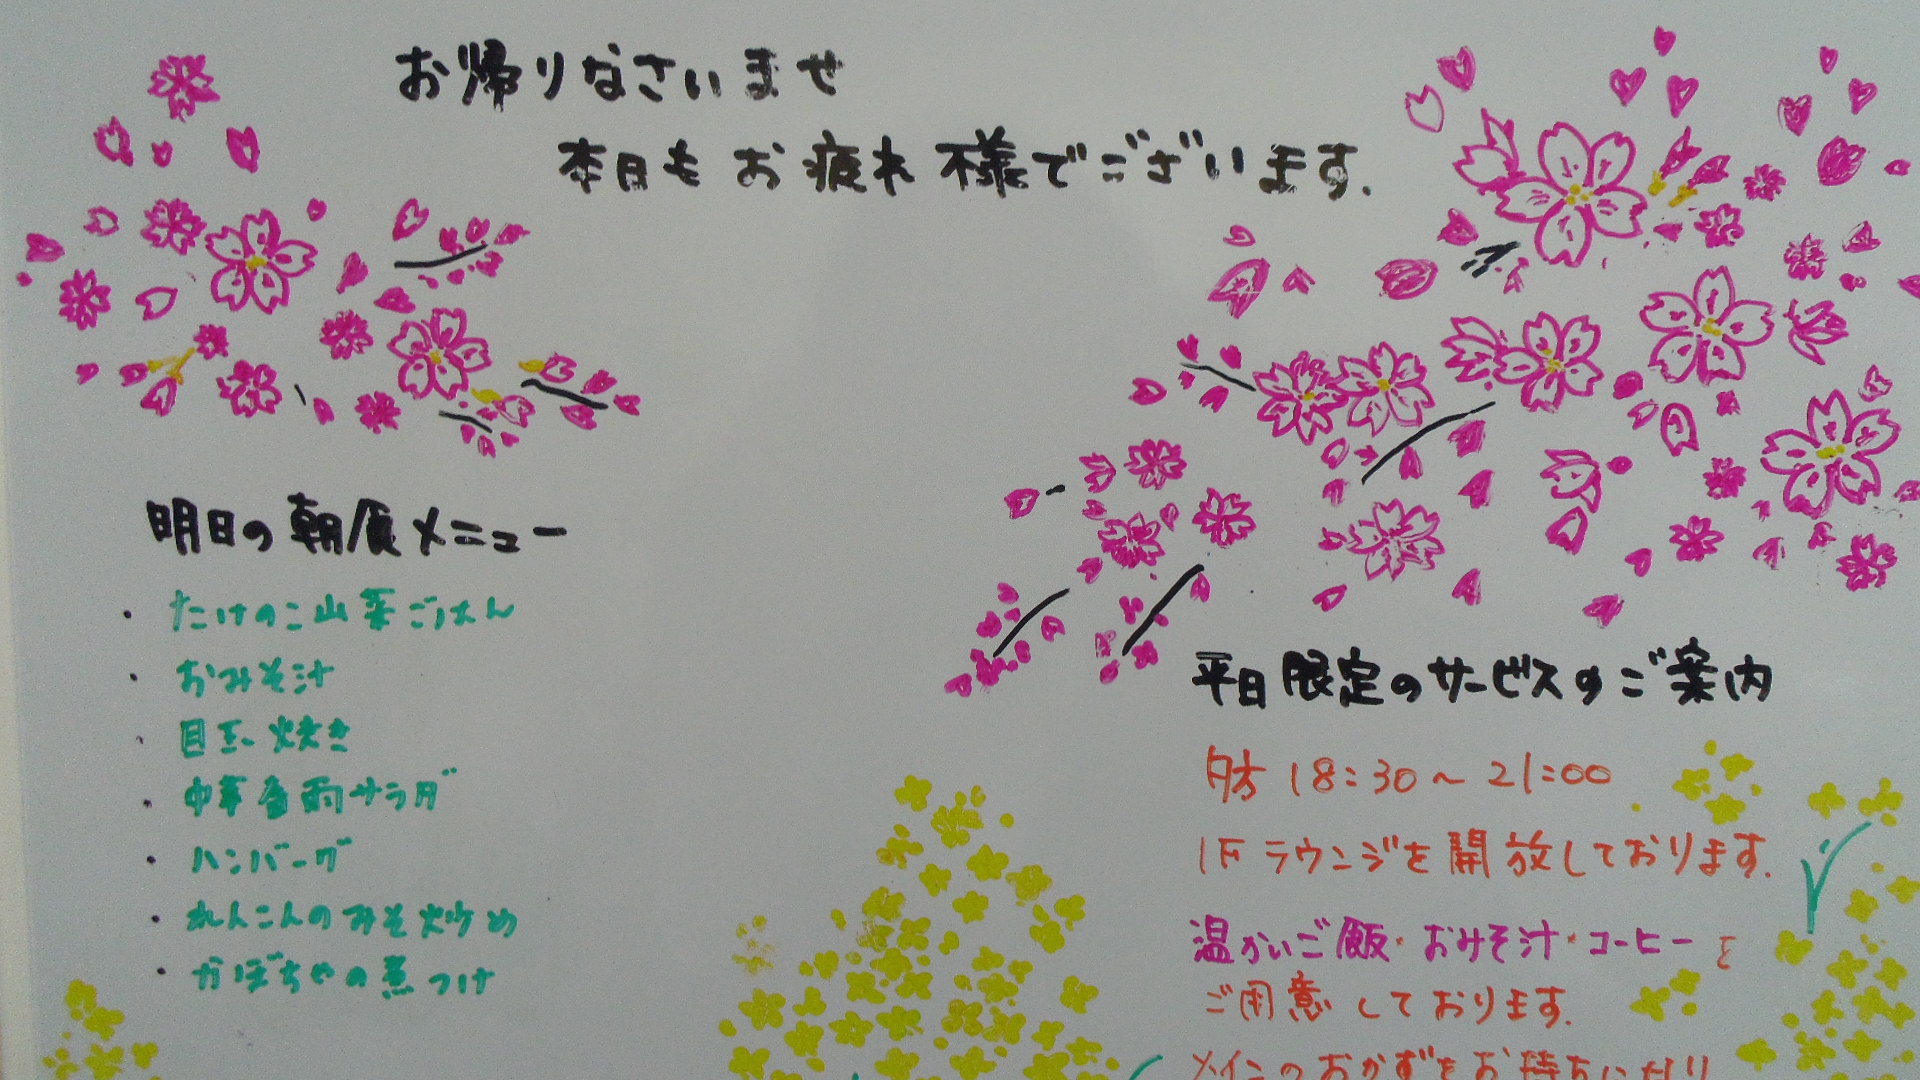 お帰りなさいませ
本日もお疲れ様でございます.
明日の朝食メニュー
・たけのこ山菜ごはん
・おみそ汁
・目玉焼き
・中華春雨サラダ
・ハンバーグ
・れんこんのみそ炒め
・かぼちゃの煮つけ
平日限定のサービスのご案内
夕方 18:30～21:00
1Fラウンジを開放しております.
温かいご飯・おみそ汁・コーヒーを
ご用意しております.
メインのおかずをお持ちいただり